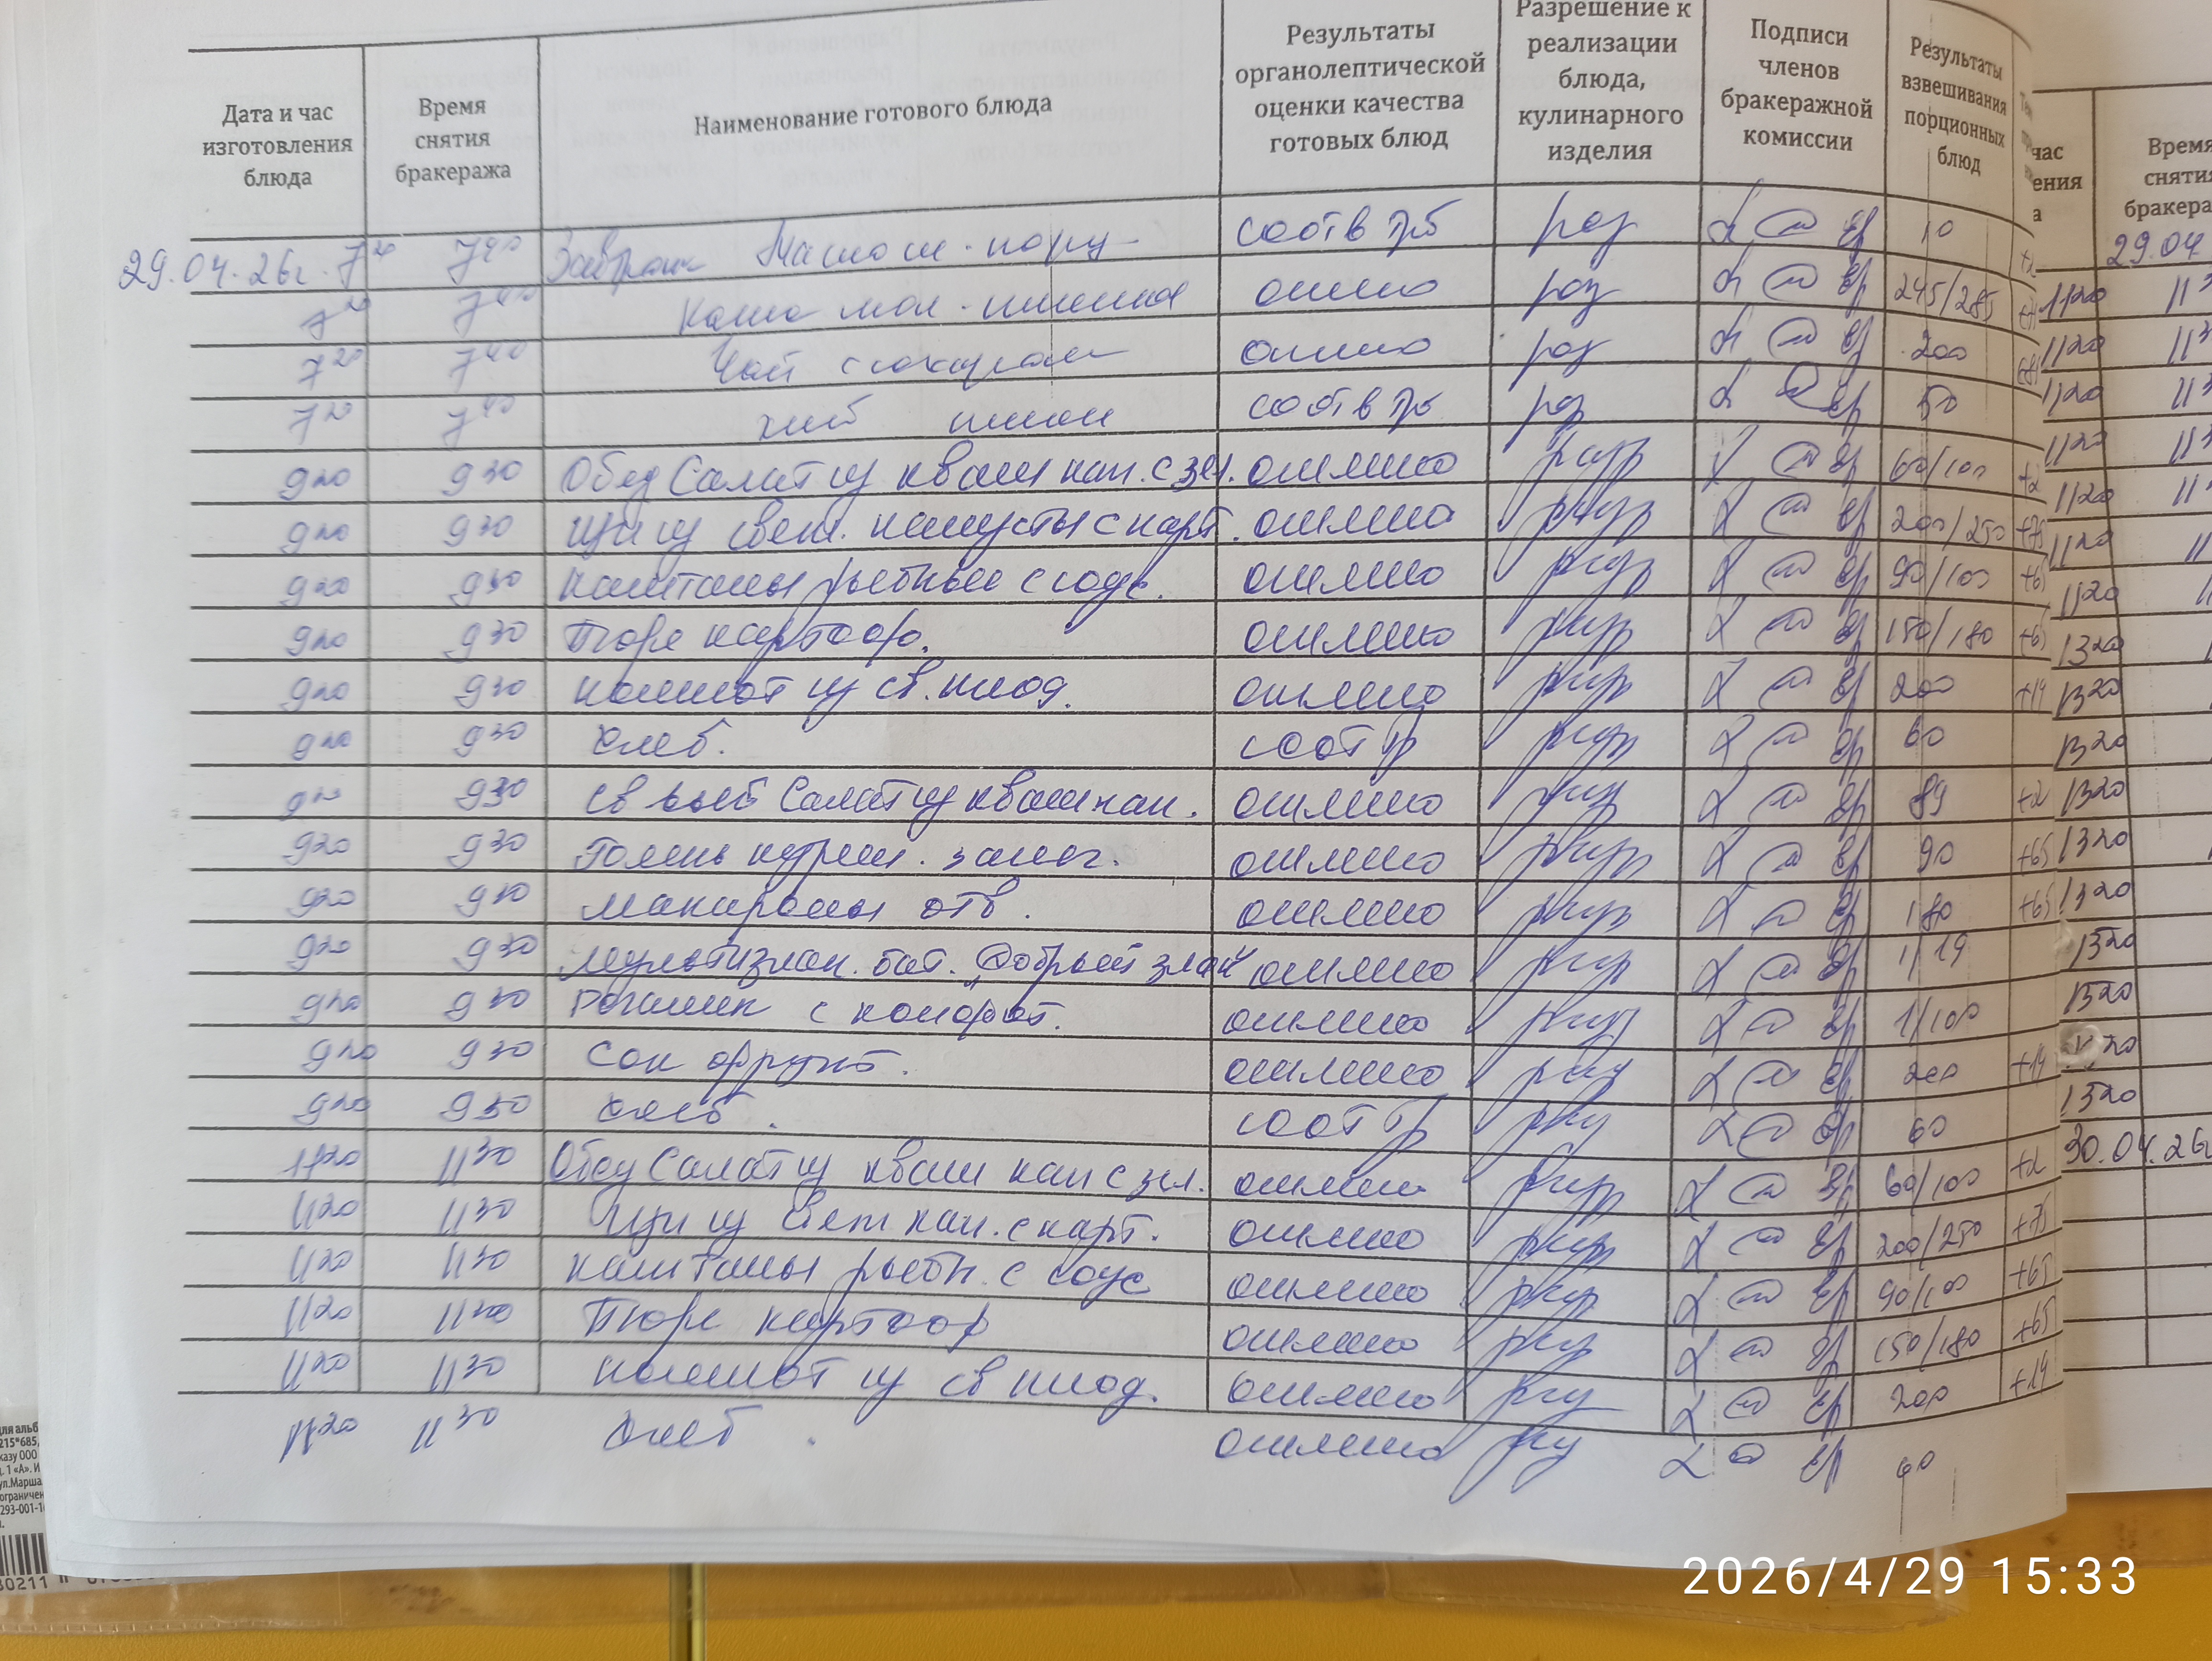 Дата и час изготовления блюда
Время снятия бракеража
Наименование готового блюда
Результаты органолептической оценки качества готовых блюд
Разрешение к реализации блюда, кулинарного изделия
Подписи членов бракеражной комиссии
Результаты взвешивания порционных блюд
29.04.26г. 7 20 7 40 Завтрак Масло сл. порц соотв тр б раз 10
7 20 7 40 Каша мол. пшенная отлично раз 245/285
7 20 7 40 Чай с сахаром отлично раз 200
7 20 7 40 хлеб пшен соотв тр б раз 50
9 20 9 30 Обед Салат из кваш кап. с зел. отлично разр 60/100 +2
9 20 9 30 Щи из свеж. капусты с карт. отлично разр 200/250 +75
9 20 9 30 рыбные с соус. отлично разр 90/100 +65
9 20 9 30 Пюре картоф. отлично разр 150/180 +65
9 20 9 30 компот из св. плод. отлично разр 200 +14
9 20 9 30 Хлеб. соот тр разр 60
9 20 9 30 Салат из кваш кап. отлично раз +2
9 20 9 30 Голень курин. запеч. отлично разр 90 +65
9 20 9 30 макароны отв. отлично разр 180 +65
9 20 9 30 мультизлак. бат. "Добрый злак" отлично разр 1/19
9 20 9 30 Рогалик с конфит. отлично разр 1/100
9 20 9 30 Сок фрукт. отлично раз 200 +14
9 20 9 30 Хлеб. соот тр раз 60
11 20 11 30 Обед Салат из кваш кап с зел. отлично разр 60/100 +2
11 20 11 30 Щи из свеж кап. с карт. отлично разр 200/250 +75
11 20 11 30 рыбн. с соус отлично разр 90/100 +65
11 20 11 30 Пюре картоф отлично разр 150/180 +65
11 20 11 30 компот из св плод. отлично раз 200 +14
11 20 11 30 Хлеб. отлично раз
час
ения
а
Время
сняти
бракера
29.04
11 20
11 20
11 20
11 20
11 20
11 20
11 20
13 20
13 20
13 20
13 20
13 20
13 20
13 20
13 20
13 20
30.04.26г
ля альб
215*685,
казу ООО
д. 1 «А». И
ул.Марша
ограничен
293-001-1
2026/4/29 15:33